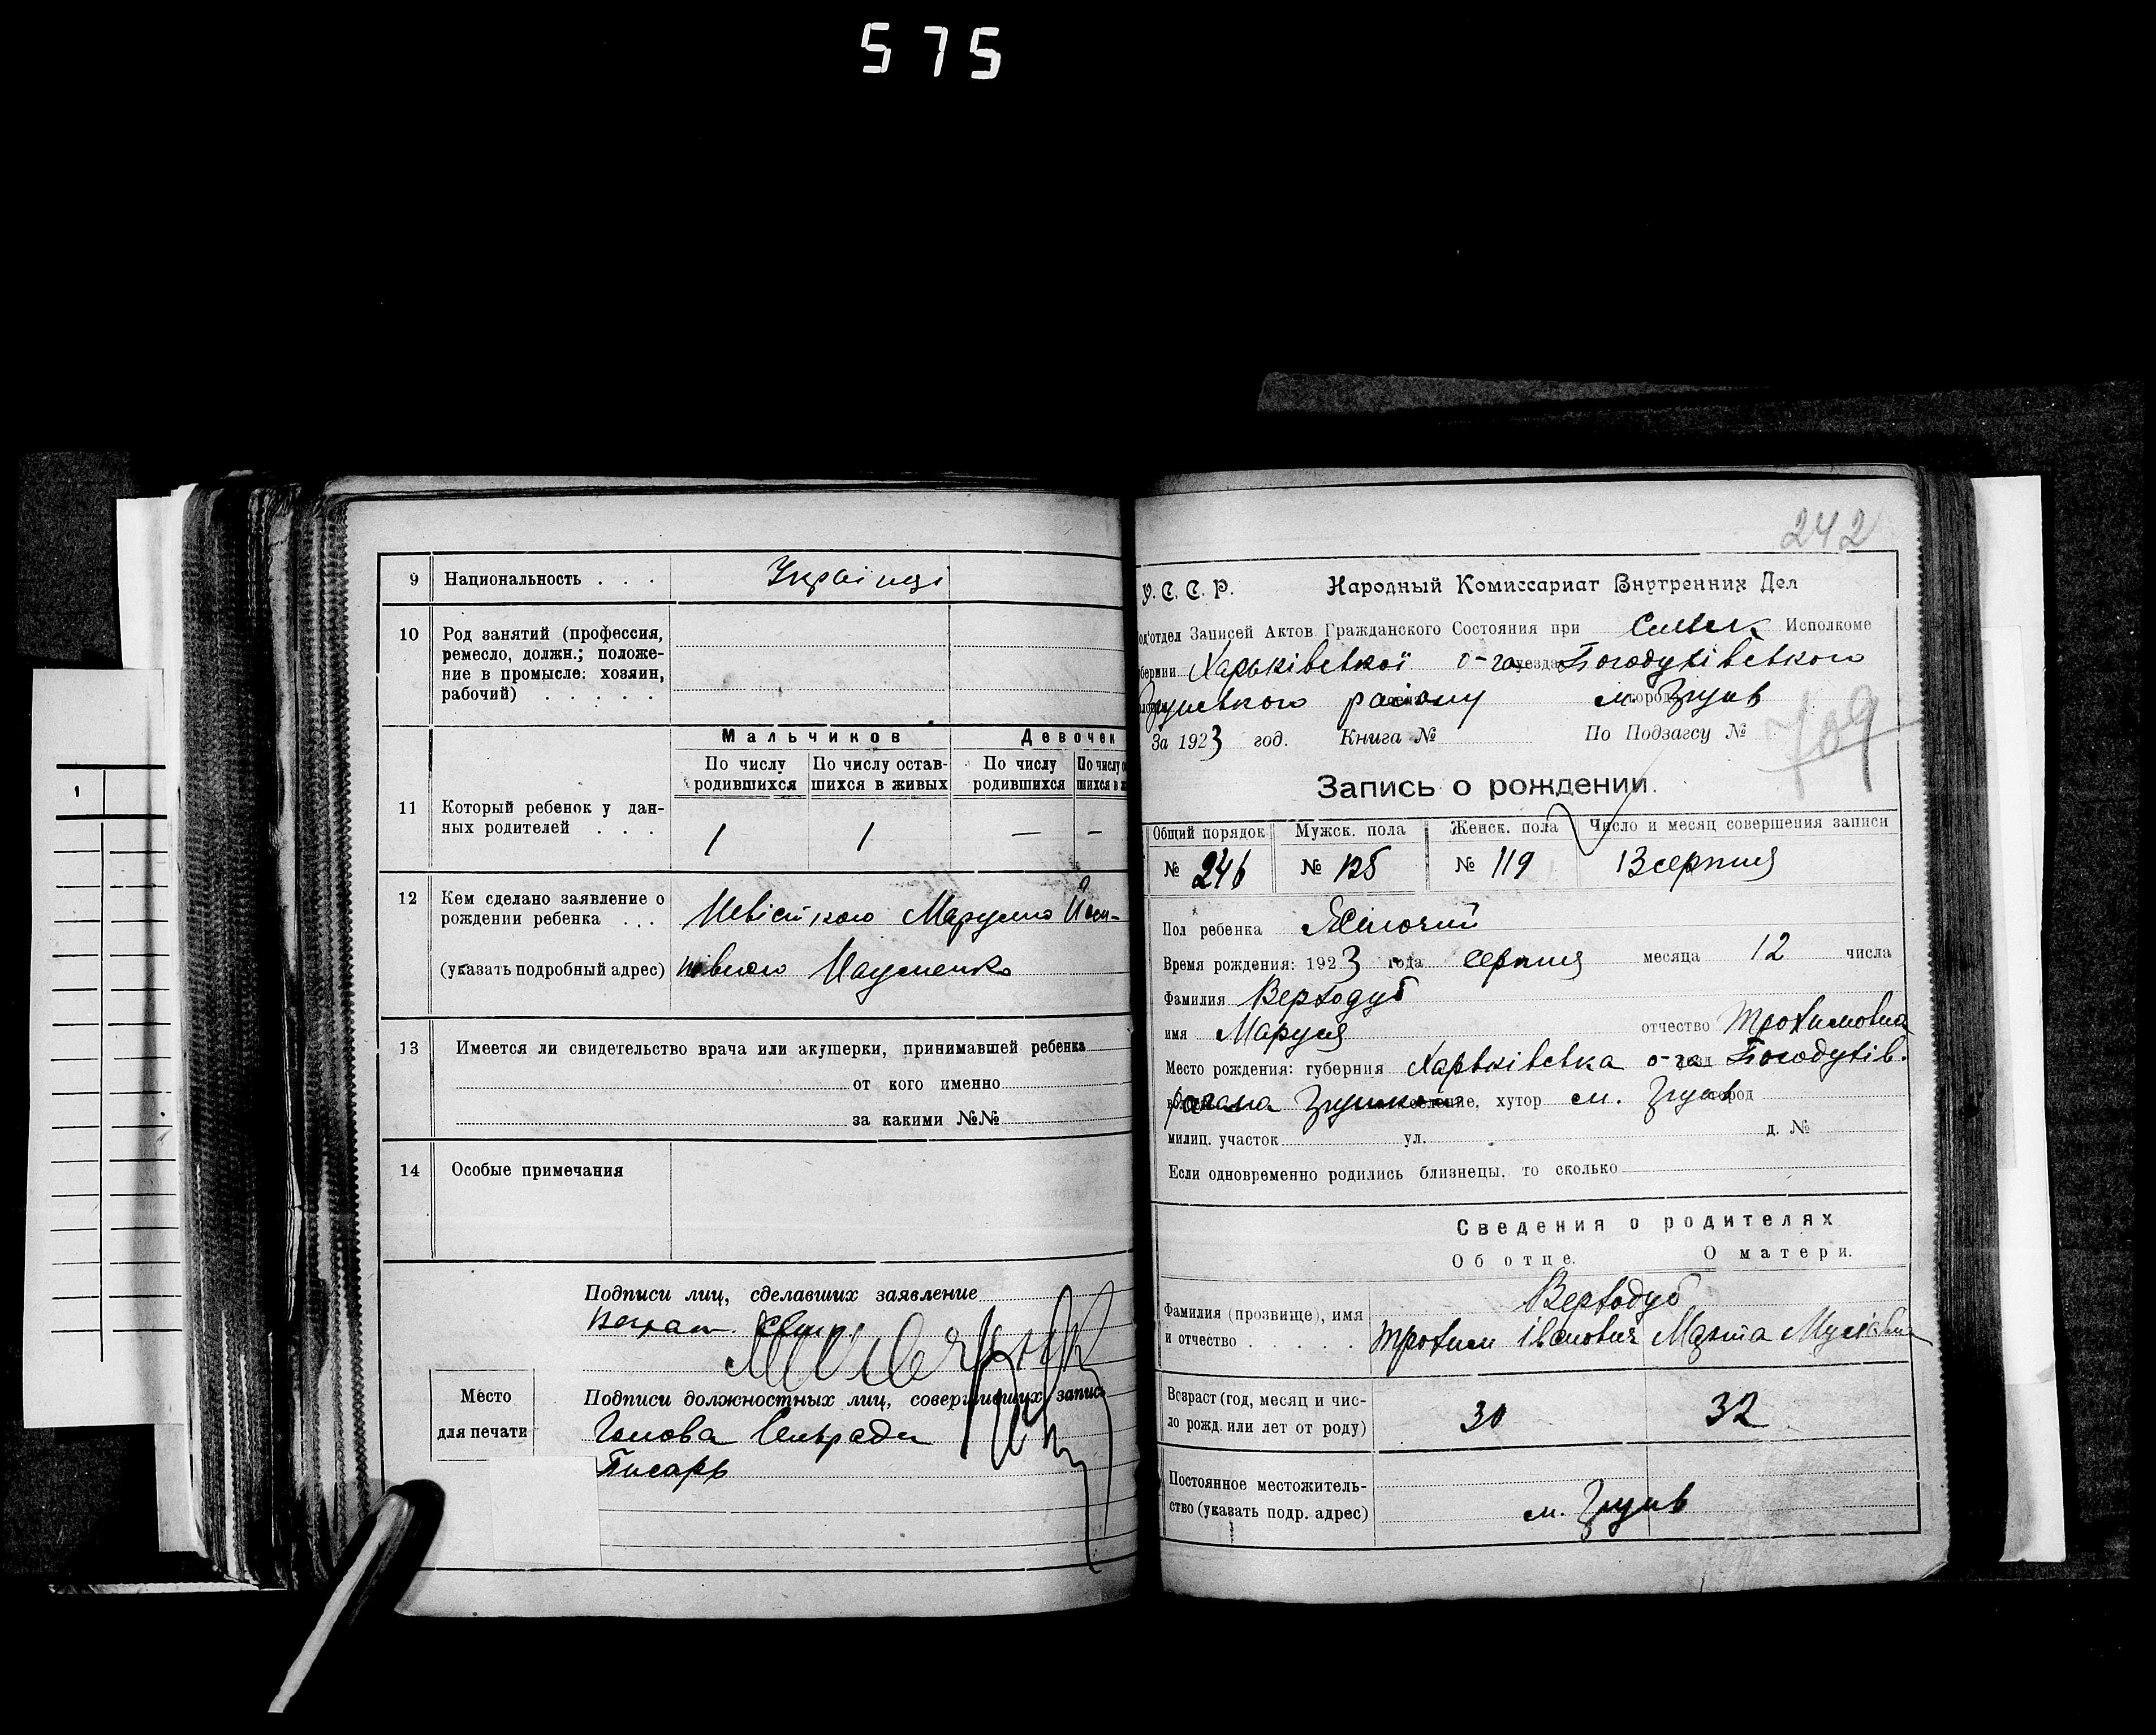 575
9 Национальность . . . Українці
10 Род занятий (профессия,
ремесло, должн.; положе-
ние в промысле: хозяин,
рабочий) . . . . .
Мальчиков Девочек
По числу родившихся По числу остав-шихся в живых По числу родившихся
11 Который ребенок у дан-
ных родителей . . . 1 1 — —
12 Кем сделано заявление о
рождении ребенка . . . Марусею
(указать подробный адрес) Науменко
13 Имеется ли свидетельство врача или акушерки, принимавшей ребенка
от кого именно
за какими №№
14 Особые примечания
Подписи лиц, сделавших заявление
Место
для печати
Подписи должностных лиц, совершивших запись
Голова Сельради
Писарь
1
242
У. С. С. Р. Народный Комиссариат Внутренних Дел
од'отдел Записей Актов Гражданского Состояния при Исполкоме
бернии Харьківської о-га уезда Богодухівського
району м. город
За 1923 год. Книга № По Подзагсу № 709
Запись о рождении.
Общий порядок Мужск. пола Женск. пола Число и месяц совершения записи
№ 246 № 125 № 119 13 серпня
Пол ребенка Жіночий
Время рождения: 1923 года серпня месяца 12 числа
Фамилия Верходуб
имя Маруся отчество Трохимовна
Место рождения: губерния Харьківська о-га Богодухів.
селение, хутор м. город
милиц. участок ул. д. №
Если одновременно родились близнецы, то сколько
Сведения о родителях
Об отце. О матери.
Фамилия (прозвище), имя Верходуб
и отчество . . . . . Трохим Іванович Марта
Возраст (год, месяц и чис-
ло рожд. или лет от роду) 30 32
Постоянное местожитель-
ство (указать подр. адрес) м.